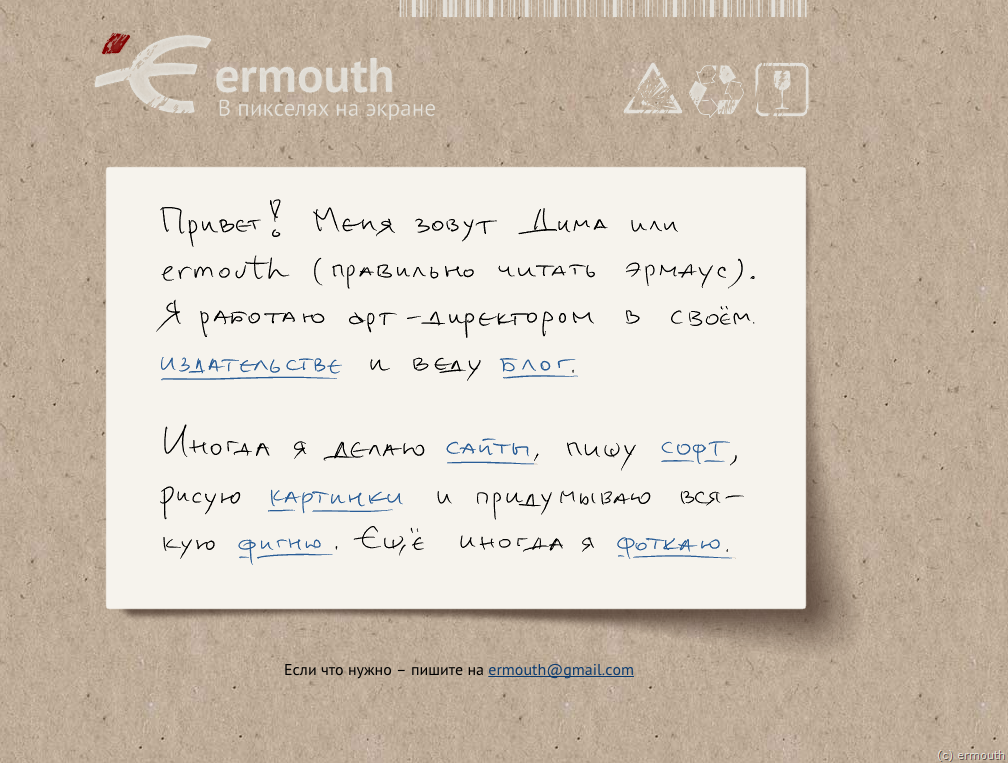 ermouth
В пикселях на экране
Привет! Меня зовут Дима или
ermouth (правильно читать эрмаус).
Я работаю арт-директором в своём
издательстве и веду блог.
Иногда я делаю сайты, пишу софт,
рисую картинки и придумываю вся-
кую фигню. Ещё иногда я фоткаю.
Если что нужно – пишите на ermouth@gmail.com
(c) ermouth